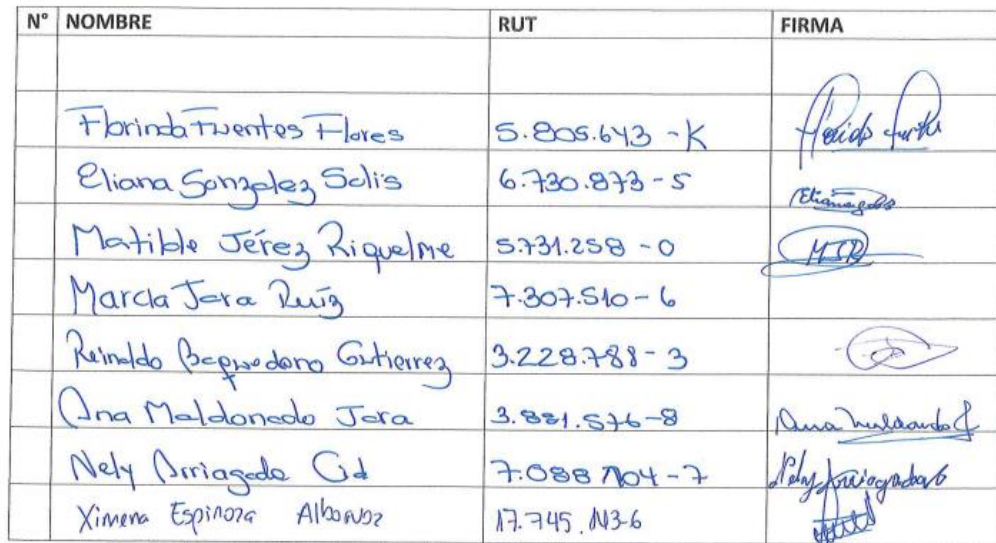 N° NOMBRE RUT FIRMA
Florinda Fuentes Flores 5.805.643-K
Eliana Gonzalez Solis 6.730.873-5
Matilde Jérez Riquelme 5.731.258-0 MJR
Marcia Jara Ruíz 7.307.510-6
Reinaldo Baquedano Gutierrez 3.228.788-3
Ana Maldonado Jara 3.881.576-8 Ana Maldonado J
Nely Arriagada Cid 7.088.104-7 Nely Arriagada
Ximena Espinoza 17.745.113-6